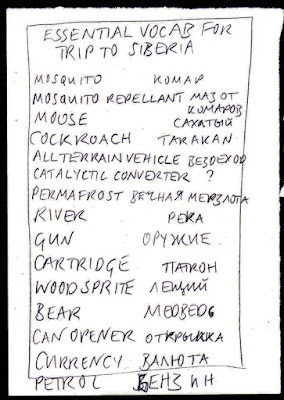 ESSENTIAL VOCAB FOR
TRIP TO SIBERIA
MOSQUITO КОМАР
MOSQUITO REPELLANT МАЗ ОТ
КОМАРОВ
MOUSE САХАТЫЙ
COCKROACH ТАRАКАN
ALLTERRAIN VEHICLE ВЕЗДЕХОД
CATALYCTIC CONVERTER ?
PERMAFROST ВЕЧНАЯ МЕРЗЛОТА
RIVER РЕКА
GUN ОРУЖИЕ
CARTRIDGE ПАТРОН
WOODSPRITE ЛЕЩИЙ
BEAR МЕДВЕДЬ
CAN OPENER ОТКРЫЖКА
CURRENCY ВАЛЮТА
PETROL БЕНЗИН